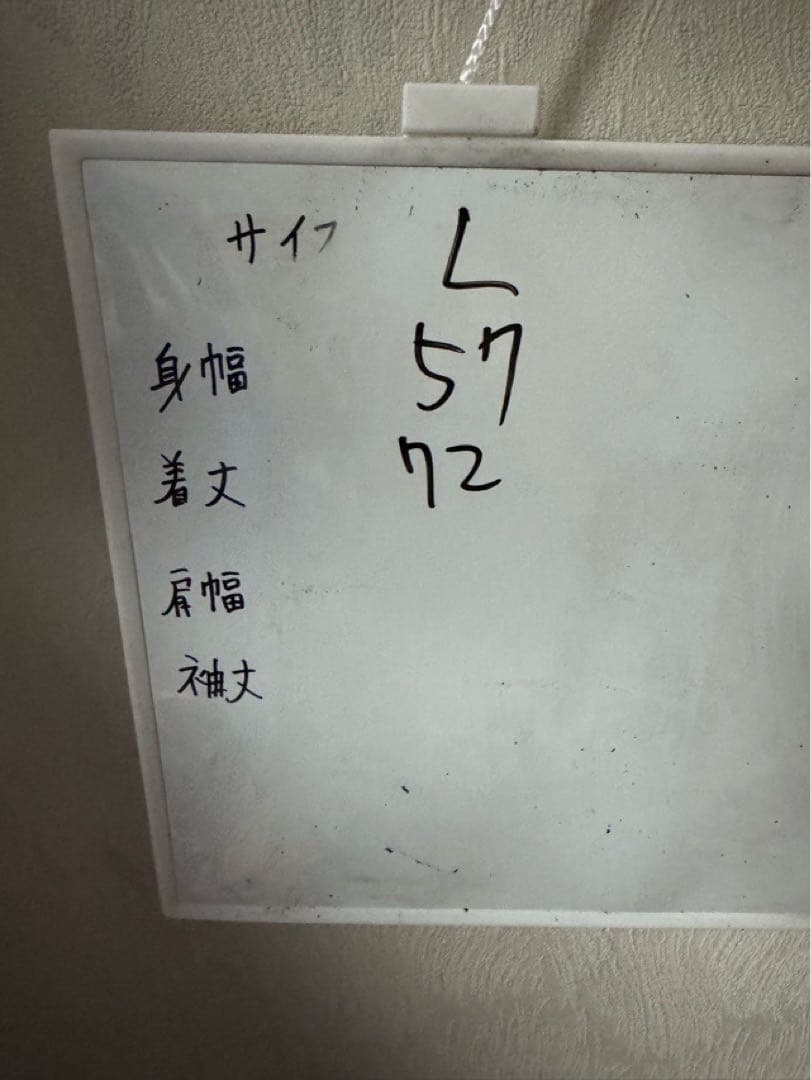 サイフ L
身幅 57
着丈 72
肩幅
袖丈